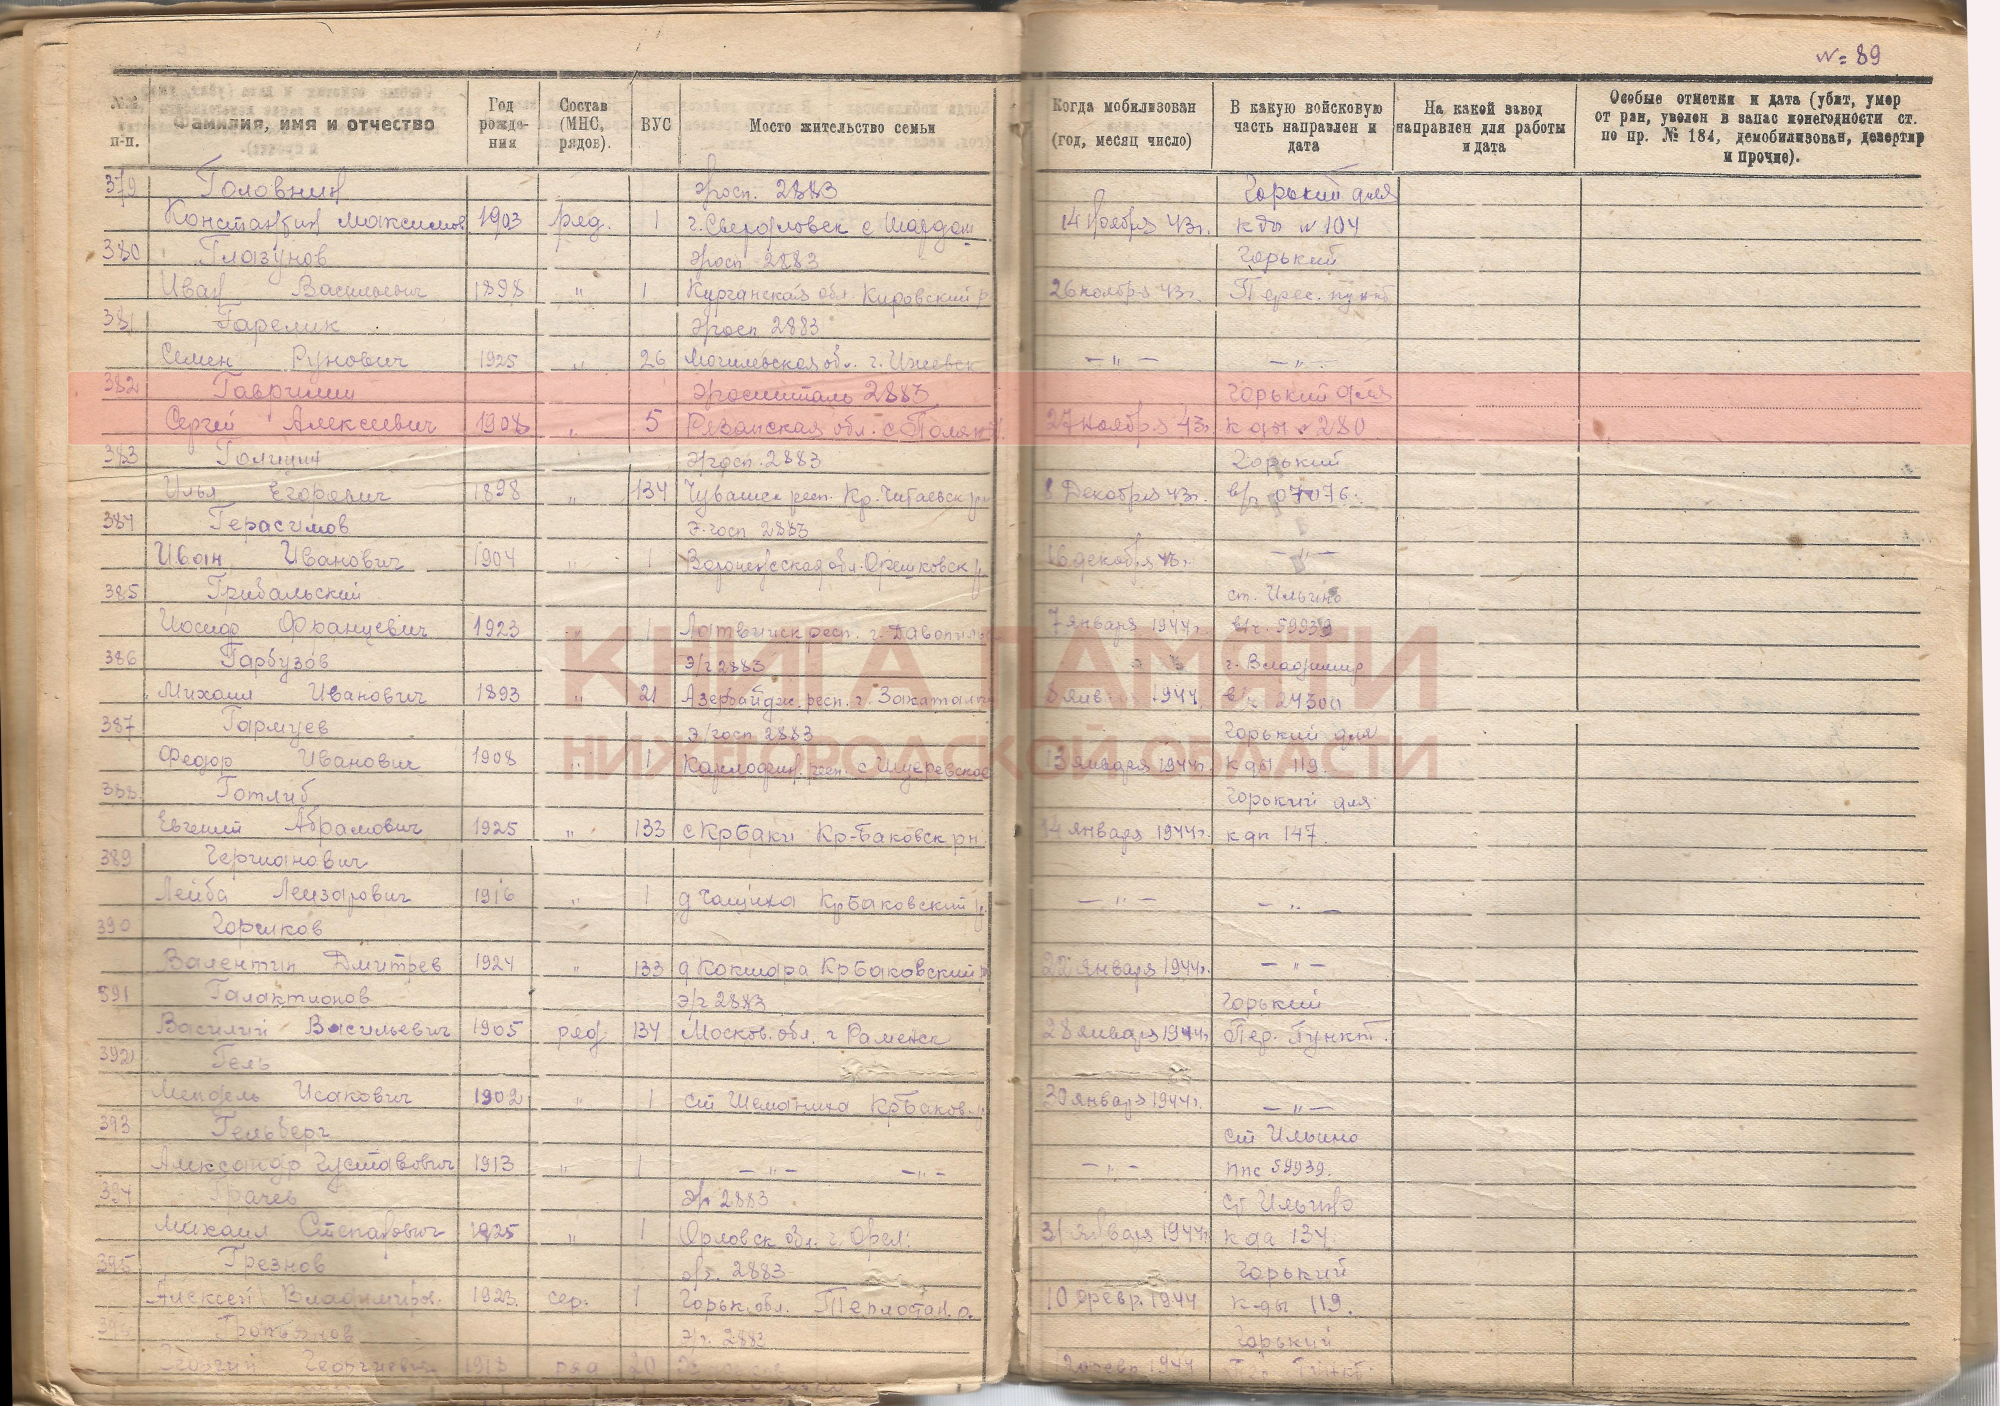 № 89
№№ п-п.
Фамилия, имя и отчество
Год рожде- ния
Состав (МНС, рядов).
ВУС
Место жительство семьи
Когда мобилизован (год, месяц число)
В какую войсковую часть направлен и дата
На какой завод направлен для работы и дата
Особые отметки и дата (убит, умер от ран, уволен в запас по негодности ст. по пр. № 184, демобилизован, дезертир и прочие).
379 Головнин Эгосп. 2883 Горький для
Константин Максимов 1903 ряд. 1 г. Свердловск с 14 Ноября 43г. кды № 104
380 Глазунов Эгосп 2883 Горький
Иван Васильевич 1898 " 1 Курганская обл. Кировский р 26 ноября 43г. Перес. пункт
381 Гарелик Эгосп 2883
Семен Рунович 1925 " 26 Могилевская обл. г. Ижевск — " — — " —
382 Гаврилин Эгоспиталь 2883 Горький для
Сергей Алексеевич 1908 " 5 Рязанская обл. с 27 Ноября 43г кды № 280
383 Голицин Эгосп. 2883 Горький
Илья Егорович 1898 " 134 Чувашск респ. Кр. Читаевск 8 Декабря 43г. в/ч 07076.
384 Герасимов Э. госп 2883
Иван Иванович 1904 " 1 16 декабря 43г. — " —
385 Грибальский ст. Ильино
Иосиф Францевич 1923 " 1 Латвийск респ. г. 7 января 1944г. в/ч. 59939
386 Гарбузов Э/г 2883 г. Владимир
Михаил Иванович 1893 " 21 Азербайдж. респ. г. Закаталы 8 янв 1944 в/ч 24300
387 Гармуев Э/госп 2883 Горький для
Федор Иванович 1908 " 1 13 января 1944г. кды 119.
388 Готлиб Горький для
Евгений Абрамович 1925 " 133 с Кр Баки Кр-Баковск рн. 14 января 1944г. кдп 147.
389
Лейба Лейзарович 1916 " 1 д Чащиха Кр Баковский р. — " — — " —
390 Горшков
Валентин Дмитрев 1924 " 133 д Кокшара Кр Баковский 22 января 1944г. — " —
391 Галактионов Э/г 2883 Горький
Василий Васильевич 1905 ряд. 134 Москов. обл. г Раменск 28 января 1944г. Пер. Пункт.
392 Гель
Мендель Исакович 1902 " 1 ст Шеманиха Кр Баков. 30 января 1944г. — " —
393 Гельберг ст Ильино
Александр Густавович 1913 " 1 — " — — " — — " — ппс 59939.
394 Грачев Эг 2883 ст Ильино
Михаил Степанович 1925 " 1 Орловск обл. г. Орел. 31 января 1944г кда 134.
395 Грезнов 2883 Горький
Алексей Владимиров. 1923 сер. 1 Горьк. обл. Теплостан. р. 10 февр. 1944 кды 119.
Э/г. 2883 Горький
Георгий Георгиевич 1918 ряд 20 12 февр 1944
КНИГА ПАМЯТИ
НИЖЕГОРОДСКОЙ ОБЛАСТИ